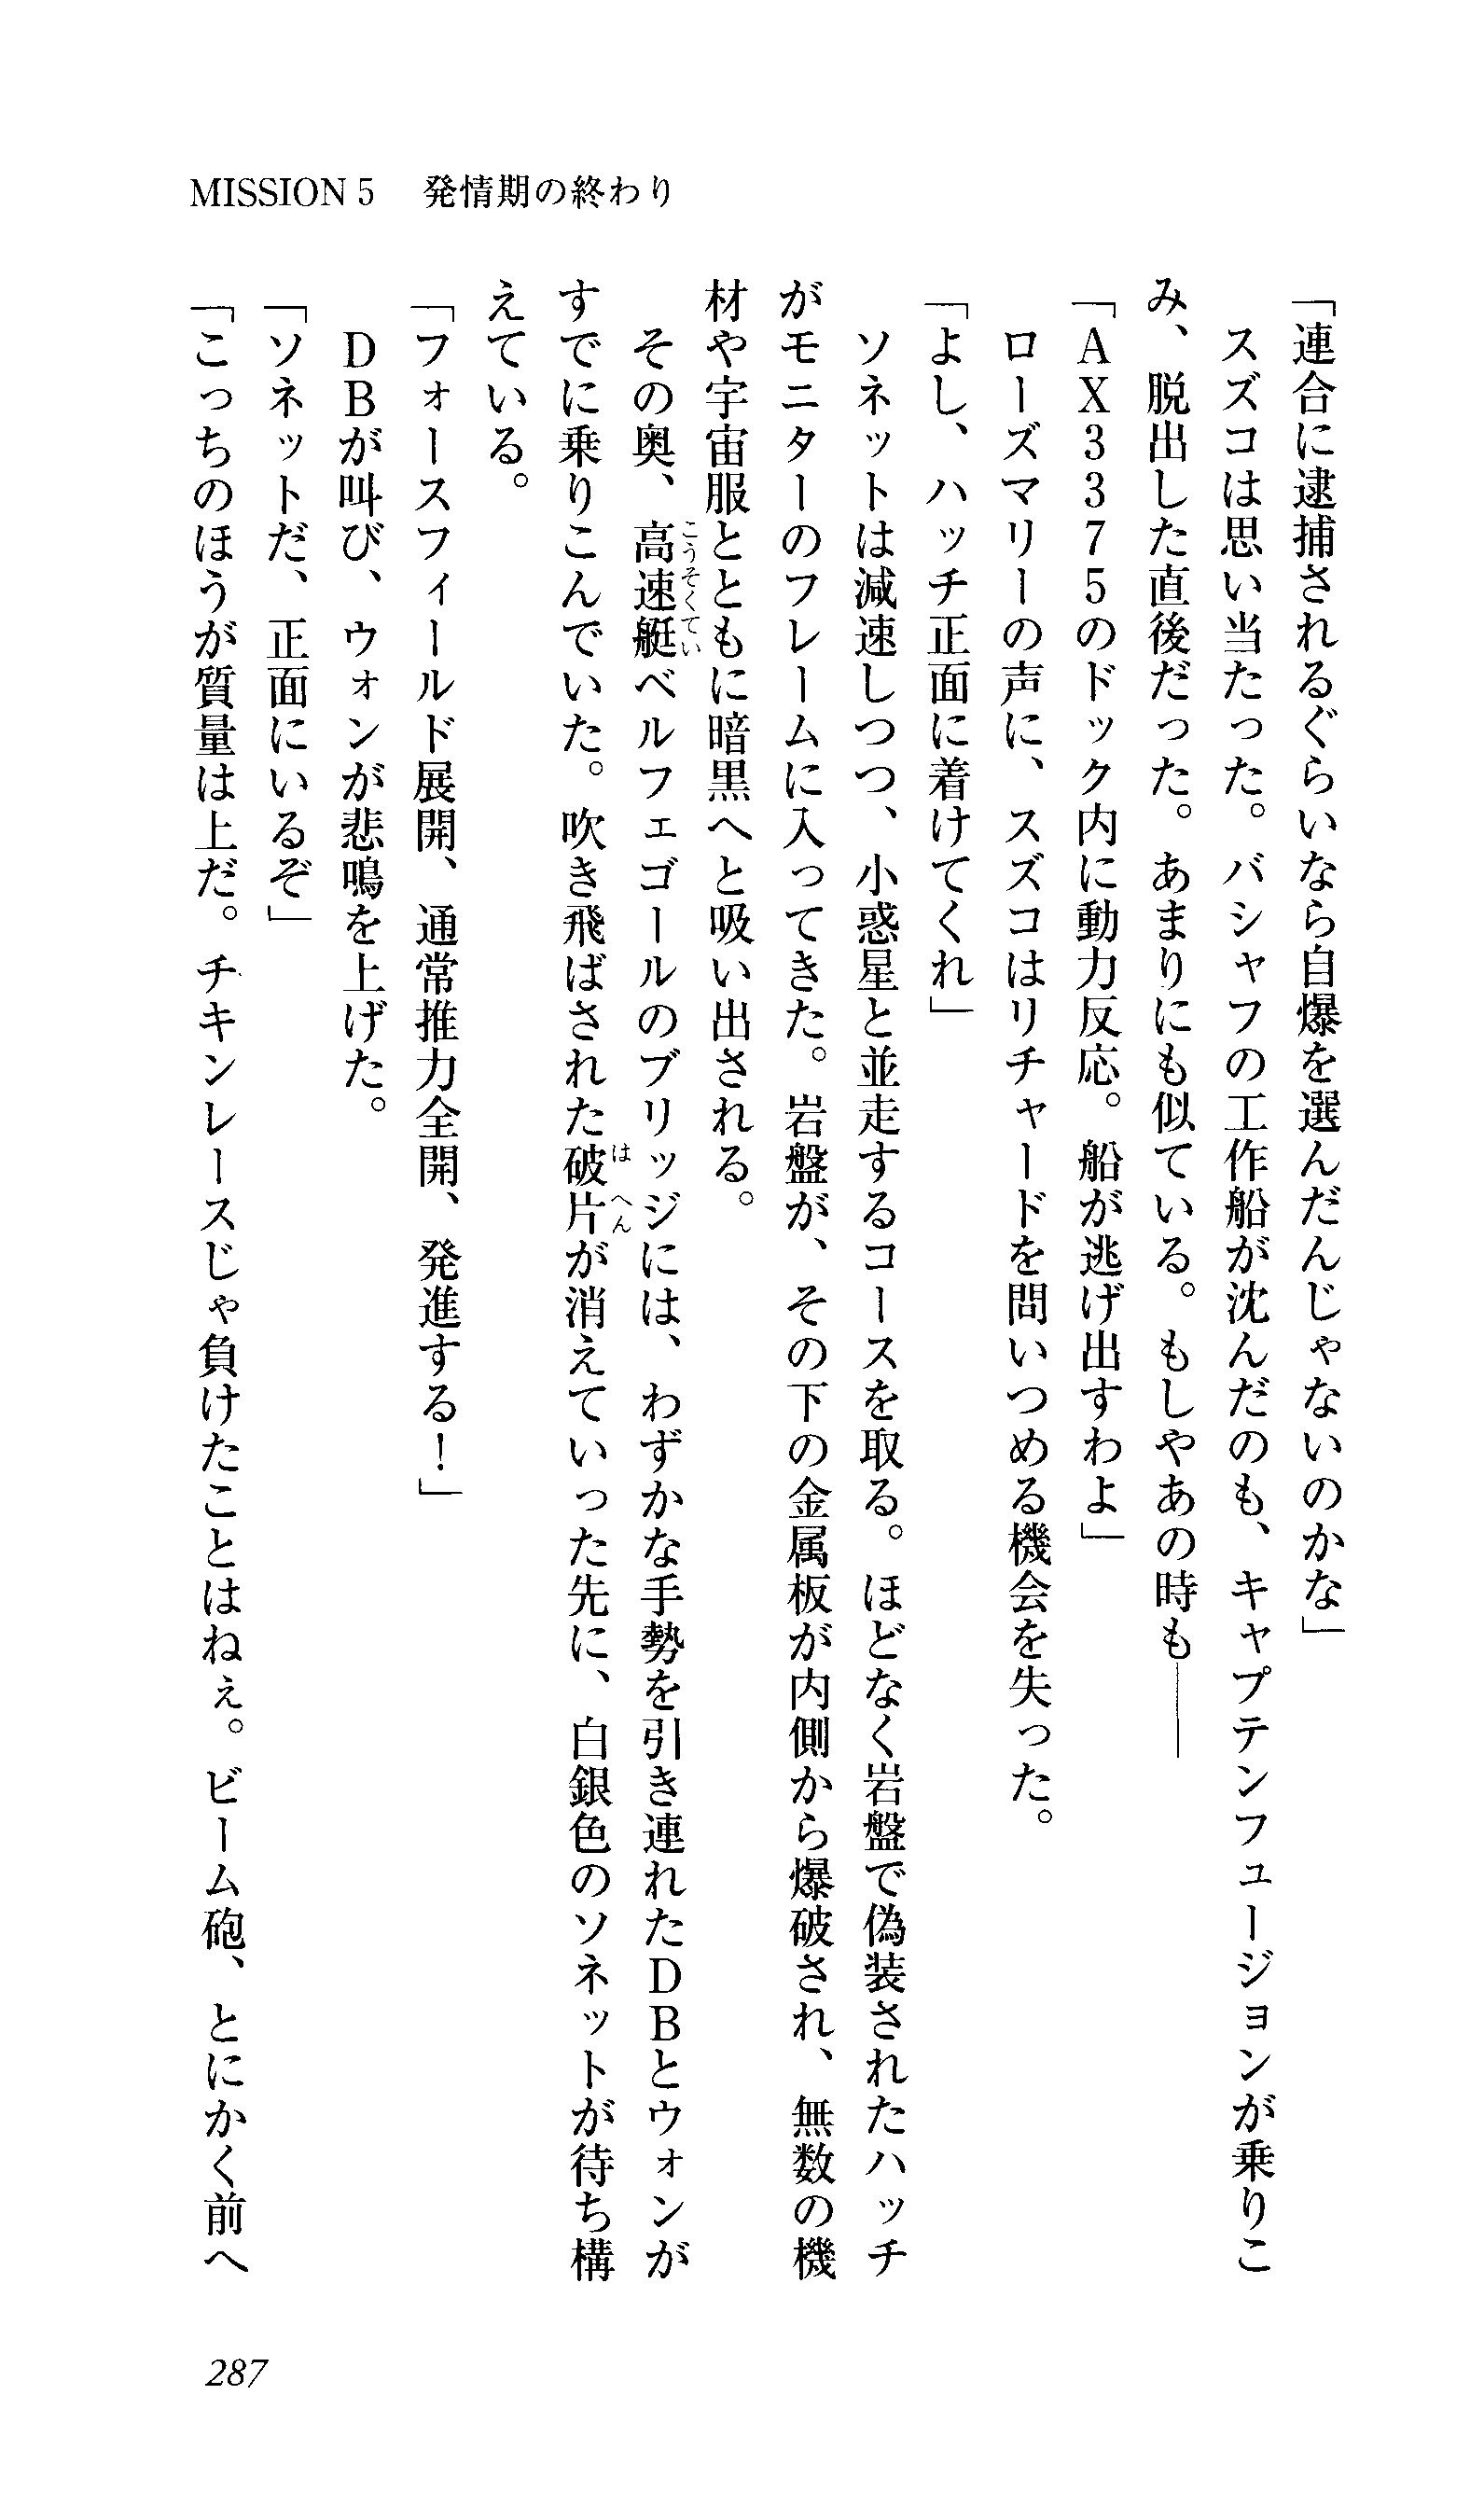 MISSION 5　発情期の終わり
「連合に逮捕されるぐらいなら自爆を選んだんじゃないのかな」
　スズコは思い当たった。バシャフの工作船が沈んだのも、キャプテンフュージョンが乗りこ
み、脱出した直後だった。あまりにも似ている。もしやあの時も――
「ＡＸ３３７５のドック内に動力反応。船が逃げ出すわよ」
　ローズマリーの声に、スズコはリチャードを問いつめる機会を失った。
「よし、ハッチ正面に着けてくれ」
　ソネットは減速しつつ、小惑星と並走するコースを取る。ほどなく岩盤で偽装されたハッチ
がモニターのフレームに入ってきた。岩盤が、その下の金属板が内側から爆破され、無数の機
材や宇宙服とともに暗黒へと吸い出される。
　その奥、高速艇ベルフェゴールのブリッジには、わずかな手勢を引き連れたＤＢとウォンが
すでに乗りこんでいた。吹き飛ばされた破片が消えていった先に、白銀色のソネットが待ち構
えている。
「フォースフィールド展開、通常推力全開、発進する！」
　ＤＢが叫び、ウォンが悲鳴を上げた。
「ソネットだ、正面にいるぞ」
「こっちのほうが質量は上だ。チキンレースじゃ負けたことはねぇ。ビーム砲、とにかく前へ
287